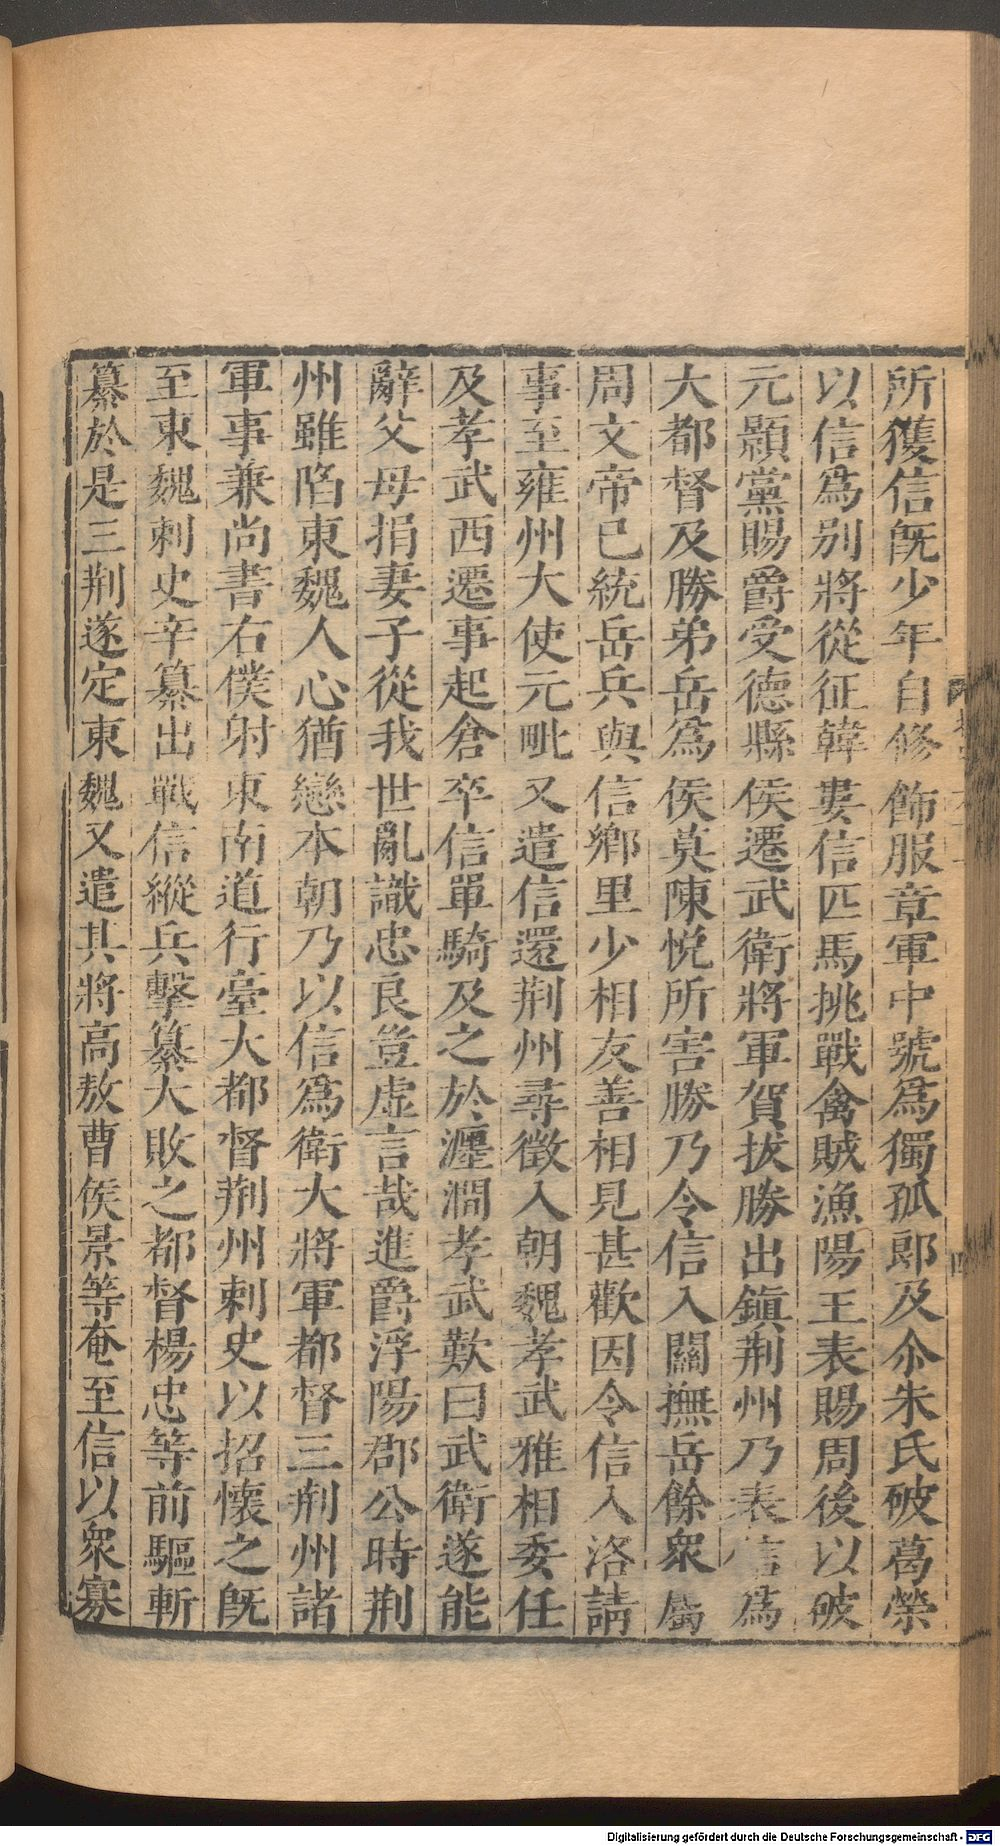 所獲信旣少年自修飾服章軍中號爲獨孤郎及尒朱氏破葛榮
以信爲別將從征韓婁信匹馬挑戰禽賊漁陽王袁賜周後以破
元顥黨賜爵受德縣侯遷武衛將軍賀拔勝出鎭荆州乃表信爲
大都督及勝弟岳爲侯莫陳悅所害勝乃令信入關撫岳餘衆屬
周文帝已統岳兵與信鄕里少相友善相見甚歡因令信入洛請
事至雍州大使元毗又遣信還荆州尋徵入朝魏孝武雅相委任
及孝武西遷事起倉卒信單騎及之於瀍澗孝武歎曰武衛遂能
辭父母捐妻子從我世亂識忠良豈虛言哉進爵浮陽郡公時荆
州雖陷東魏人心猶戀本朝乃以信爲衛大將軍都督三荆州諸
軍事兼尚書右僕射東南道行臺大都督荆州刺史以招懷之旣
至東魏刺史辛纂出戰信縱兵擊纂大敗之都督楊忠等前驅斬
纂於是三荆遂定東魏又遣其將高敖曹侯景等奄至信以衆寡
四
Digitalisierung gefördert durch die Deutsche Forschungsgemeinschaft - DFG